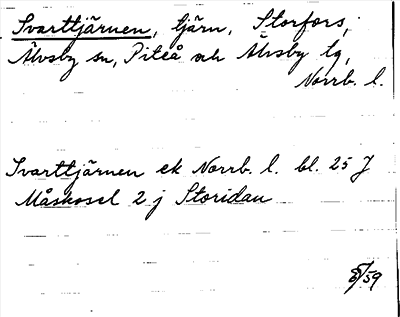 Svarttjärnen, tjärn, Storfors,
Älvsby sn, Piteå och Älvsby tg,
Norrb. l.
Svarttjärnen ek Norrb. l. bl. 25 J
Måskosel 2 j Storidan
8/59